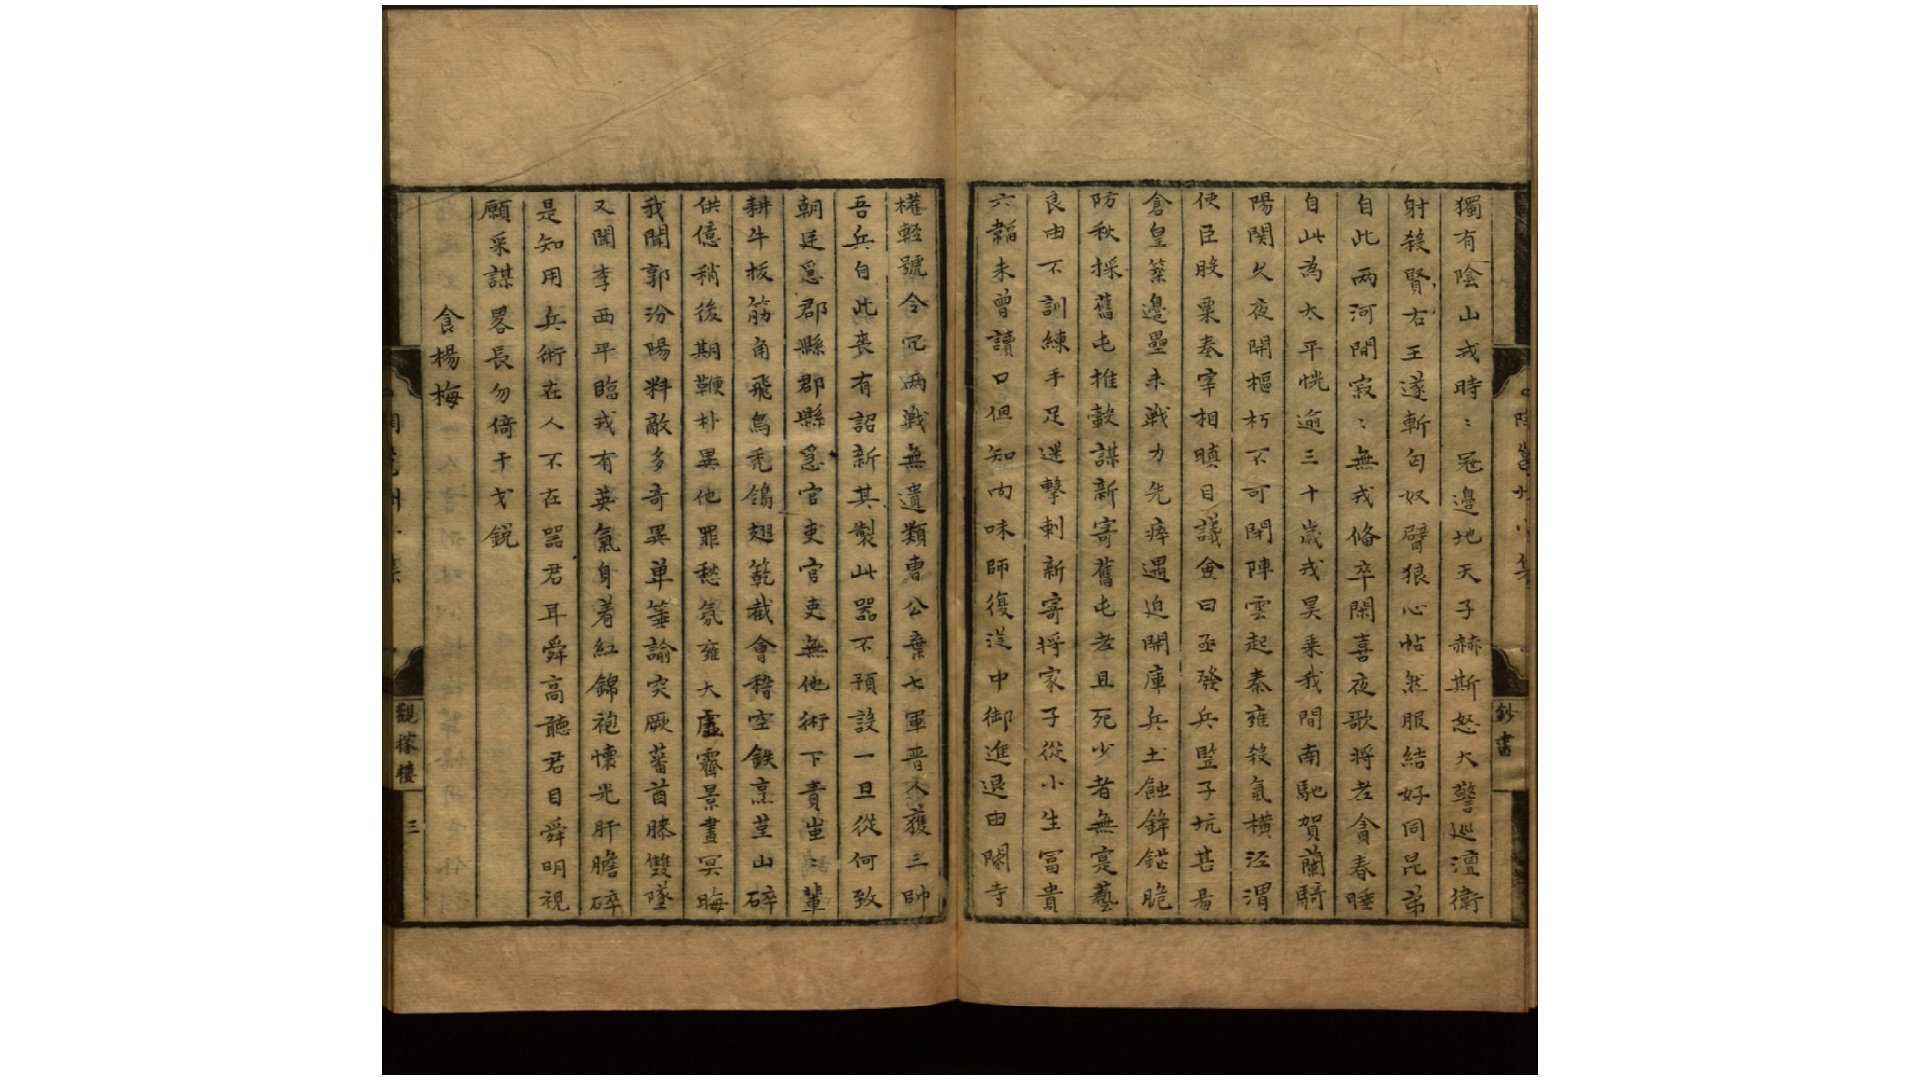 獨有陰山戎時〻冦邊地天子赫斯怒大警巡澶衛
射殺賢右王遂斬匈奴臂狼心帖然服結好同昆弟
自此兩河間寂〻無戎俻卒閑喜夜歌將老貪春睡
自此為太平恍逾三十歳戎昊乘我間南馳賀蘭騎
陽関久夜開樞朽不可閉陣雲起秦雍殺氣横涇渭
使臣股栗奏宰相瞋目議僉曰亟發兵豎子坑甚易
倉皇築邊壘未戰力先瘁遇迫開庫兵土蝕鋒鋩脆
防秋採舊屯推轂謀新寄舊屯老且死少者無寔藝
良由不訓練手足迷擊刺新寄將家子從小生冨貴
六韜未曽讀口但知肉味師復從中御進退由閹寺
權輕號令冗两戰無遺類曺公棄七軍晋人獲三帥
吾兵自此喪有詔新其製此噐不預設一旦從何致
朝廷爲郡縣郡縣爲官吏官吏無他術下責蚩〻輩
耕牛拔筋角飛鳥秃鴒翅簵截會稽空鉄烹堇山碎
供億稍後期鞭朴異他罪愁氛雍大虚霽景晝冥晦
我聞郭汾陽料敵多奇異单䇿諭突厥蕃酋膝雙墜
又聞李西平臨戎有英氣身着紅錦袍懷光肝膽碎
是知用兵術在人不在噐君耳舜高聽君目舜明視
願采謀畧長勿倚干戈鋭
食楊梅
鈔書
觀稼樓
三